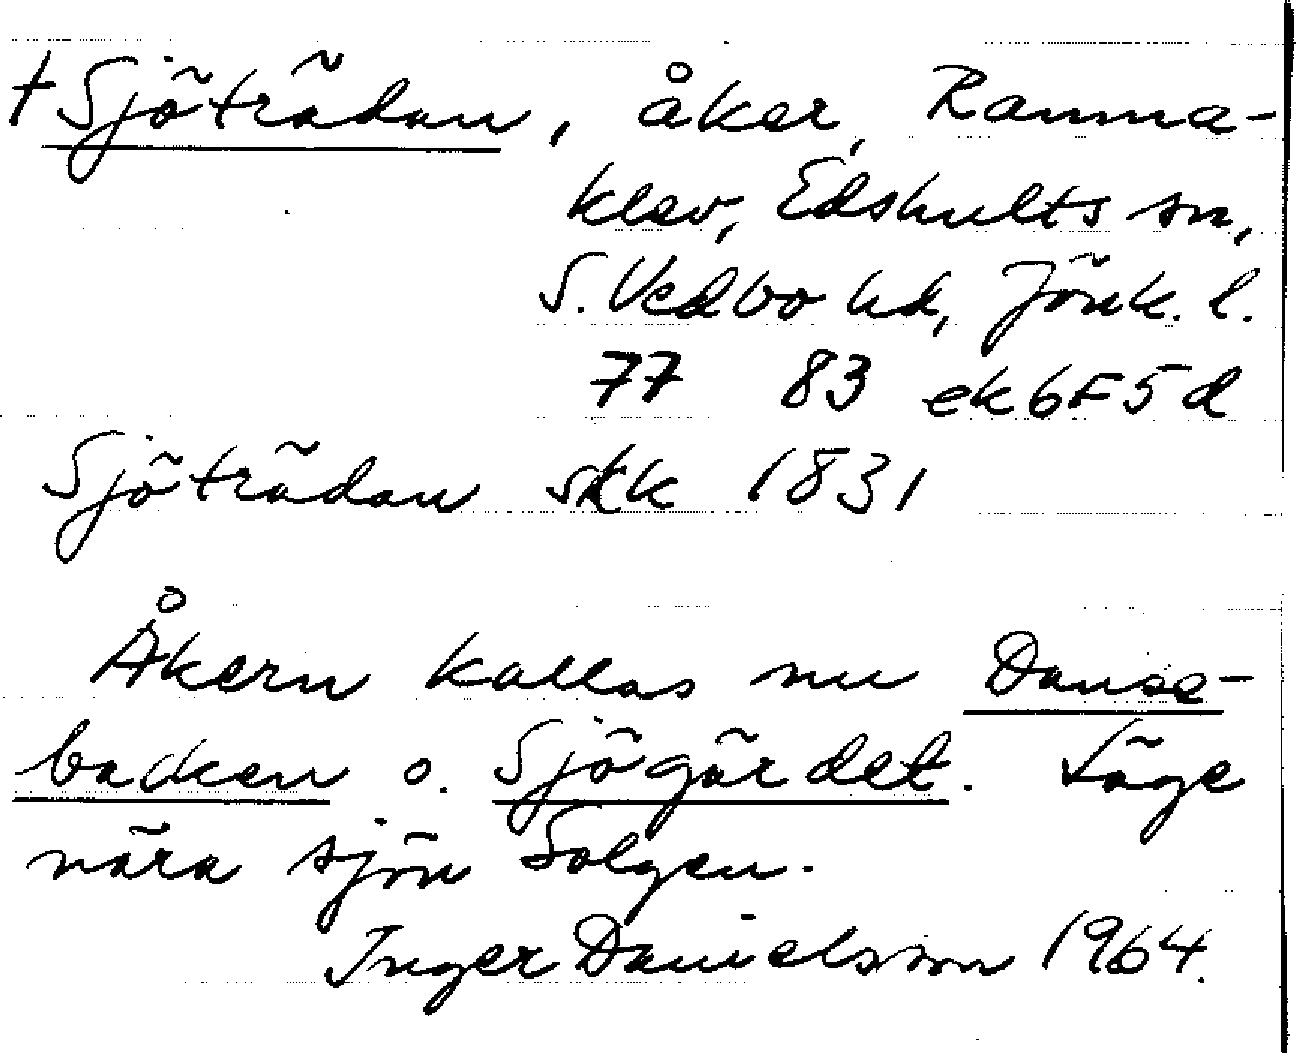 † Sjöträdan, åker, Ramma-
klev, Edshults sn,
S. Vedbo hd, Jönk. l.
77 83 ek 6F5d
Sjöträdan skk 1831
Åkern kallas nu Danse-
backen o. Sjögärdet. Läge
nära sjön Solgen.
Inger Danielsson 1964.